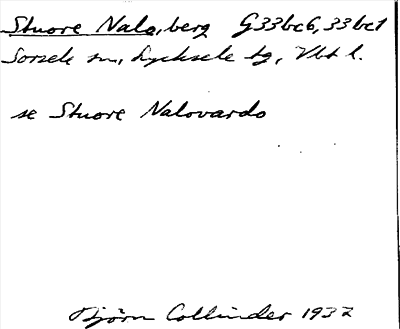 Stuore Nalo, berg G33bc6, 33bc1
Sorsele sn, Lycksele tg, Vbt l.
se Stuore Nalovardo
Björn Collinder 1932